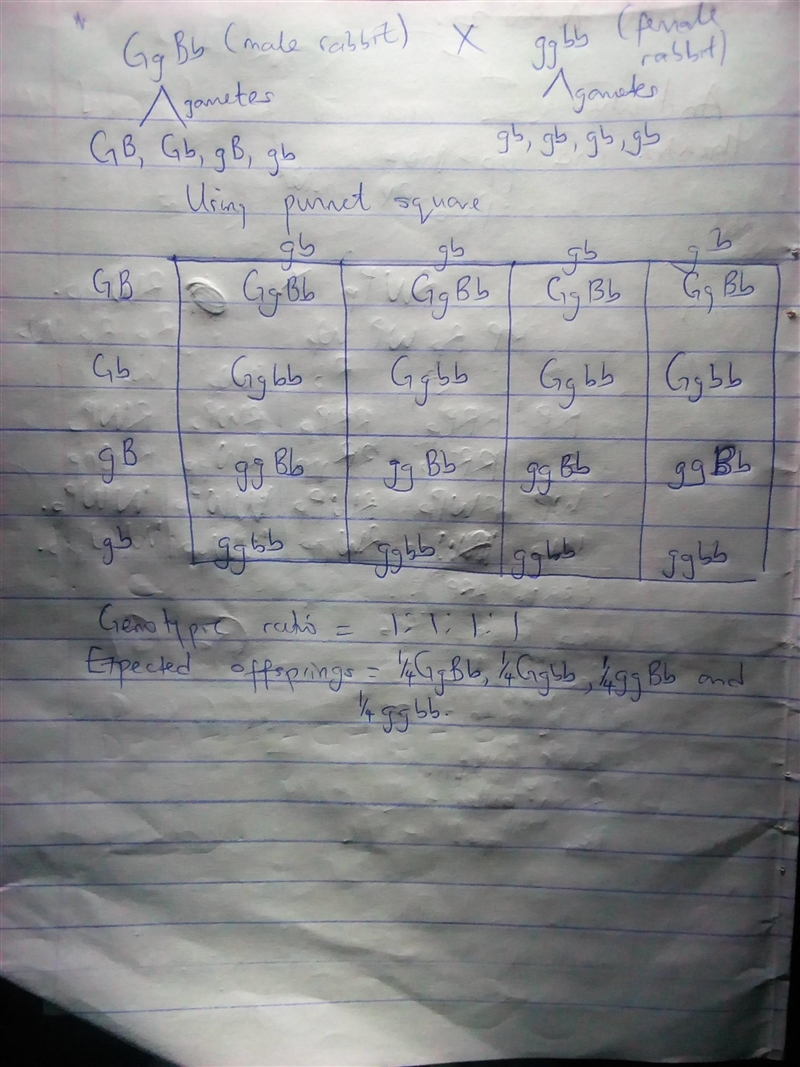 *
GgBb (male rabbit) X ggbb (female rabbit)
gametes gametes
GB, Gb, gB, gb gb, gb, gb, gb
Using punnet square
gb gb gb gb
GB GgBb GgBb GgBb GgBb
Gb Ggbb Ggbb Ggbb Ggbb
gB ggBb ggBb ggBb ggBb
gb ggbb ggbb ggbb ggbb
Genotypic ratio = 1: 1: 1: 1
Expected offsprings = 1/4GgBb, 1/4Ggbb, 1/4ggBb and
1/4 ggbb.